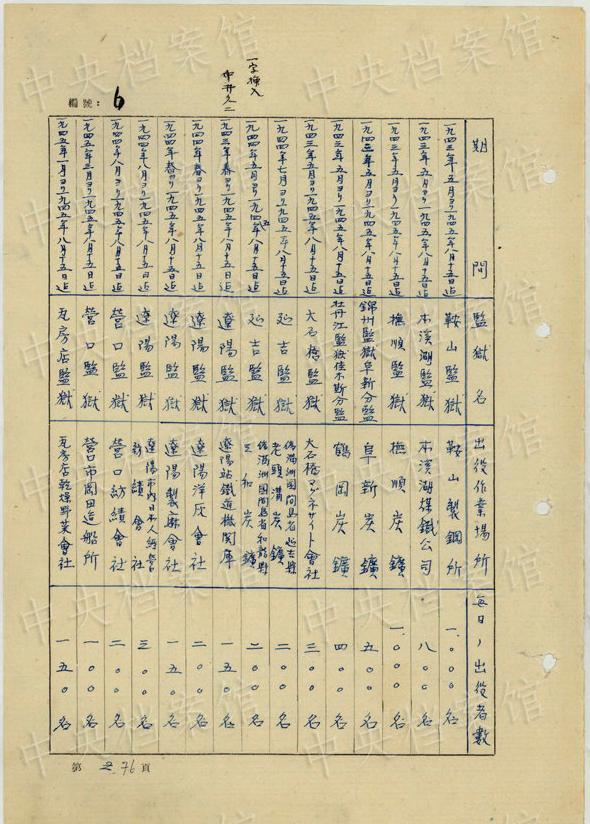 一字挿入
中井久二
編號: 6
期間 監獄名 出役作業場所 每日ノ出役者數
一九四三年五月ヨリ一九四五年八月十五日迄 鞍山監獄 鞍山製鋼所 一.〇〇〇名
一九四三年五月ヨリ一九四五年八月十五日迄 本溪湖監獄 本溪湖煤鐵公司 八〇〇名
一九四三年五月ヨリ一九四五年八月十五日迄 撫順監獄 撫順炭鑛 一.〇〇〇名
一九四三年五月ヨリ一九四五年八月十五日迄 錦州監獄阜新分監 阜新炭鑛 五〇〇名
一九四三年五月ヨリ一九四五年八月十五日迄 牡丹江監獄佳木斯分監 鶴岡炭鑛 四〇〇名
一九四三年五月ヨリ一九四五年八月十五日迄 大石橋監獄 大石橋マグネサイト會社 三〇〇名
一九四四年七月ヨリ一九四五年八月十五日迄 延吉監獄 偽滿洲國間島省延吉縣老頭溝炭鑛 二〇〇名
一九四四年五月ヨリ一九四五年八月十五日迄 延吉監獄 偽滿洲國間島省和龍縣三和炭鑛 二〇〇名
一九四三年春ヨリ一九四五年八月十五日迄 遼陽監獄 遼陽站鐵道機関庫 一五〇名
一九四四年春ヨリ一九四五年八月十五日迄 遼陽監獄 遼陽洋灰會社 二〇〇名
一九四四年春ヨリ一九四五年八月十五日迄 遼陽監獄 遼陽製麻會社 一五〇名
一九四四年八月ヨリ一九四五年八月十五日迄 遼陽監獄 遼陽市內日本人經營紡績會社 三〇〇名
一九四四年八月ヨリ一九四五年八月十五日迄 營口監獄 營口紡績會社 二〇〇名
一九四五年三月ヨリ一九四五年八月十五日迄 營口監獄 營口市岡田造船所 一〇〇名
一九四五年一月ヨリ一九四五年八月十五日迄 瓦房店監獄 瓦房店乾燥野菜會社 一五〇名
第 76 頁
中央档案馆